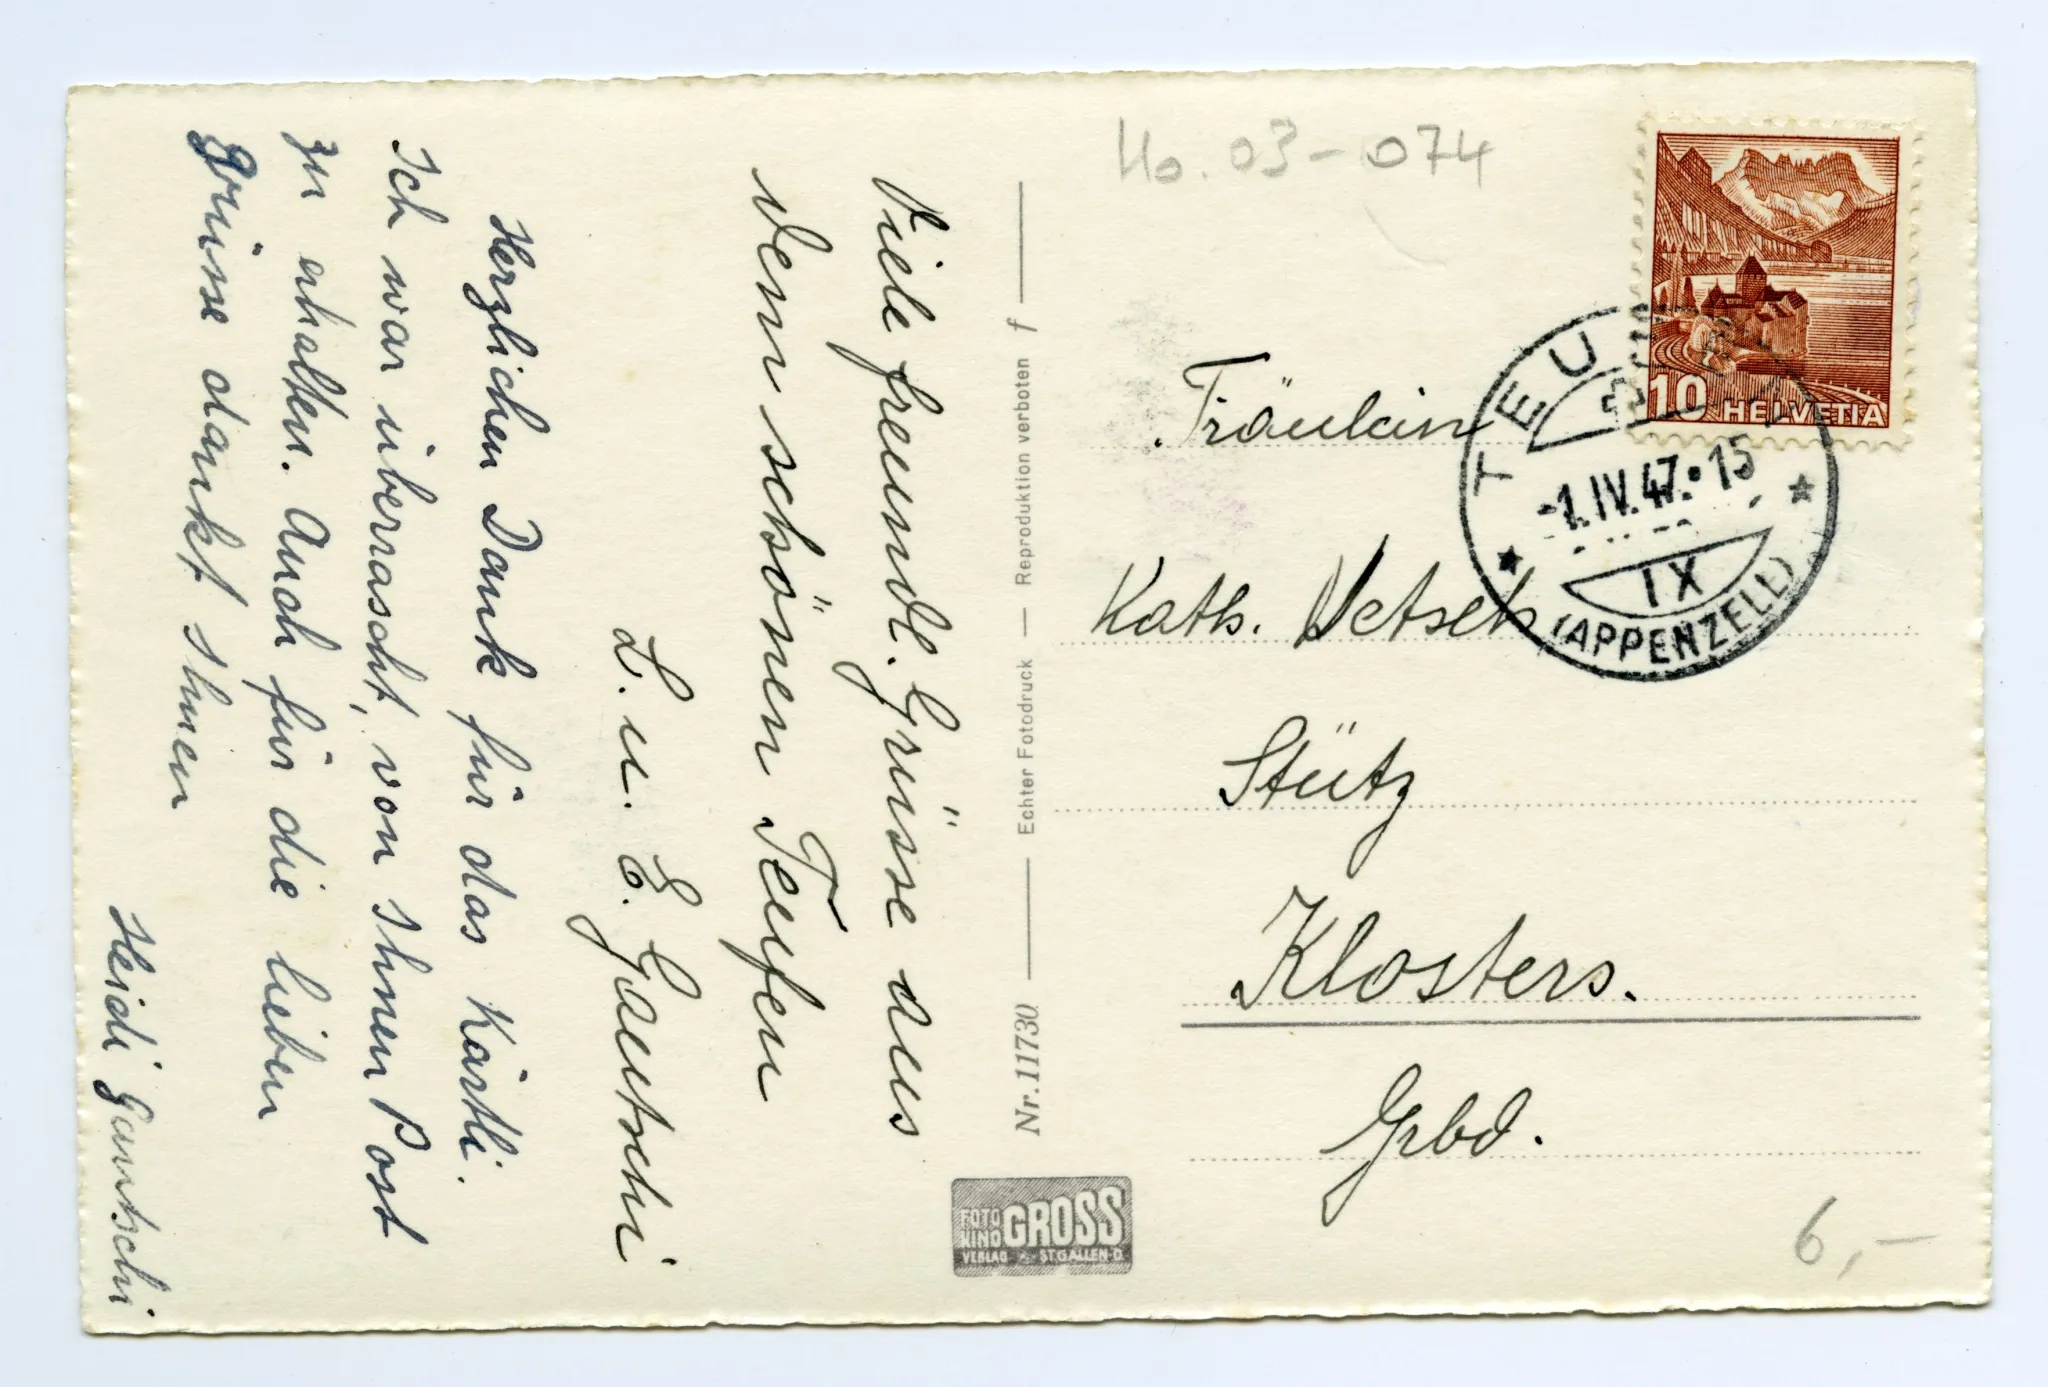 Viele freundl. Grüsse aus
dem schönen Teufen
L. u. E. Gautschi
Herzlichen Dank für das Kärtli.
Ich war überrascht, von Ihnen Post
zu erhalten. Auch für die lieben
Grüsse dankt Ihnen
Heidi Gautschi
Nr. 11730 Echter Fotodruck — Reproduktion verboten f
FOTO
KINO GROSS
VERLAG ST.GALLEN-O.
Ho. 03-074
10 HELVETIA
TEUFEN
-1.IV.47.•15
IX
(APPENZELL)
Fräulein
Kath. Vetsch
Stütz
Klosters.
Grbd.
6,-